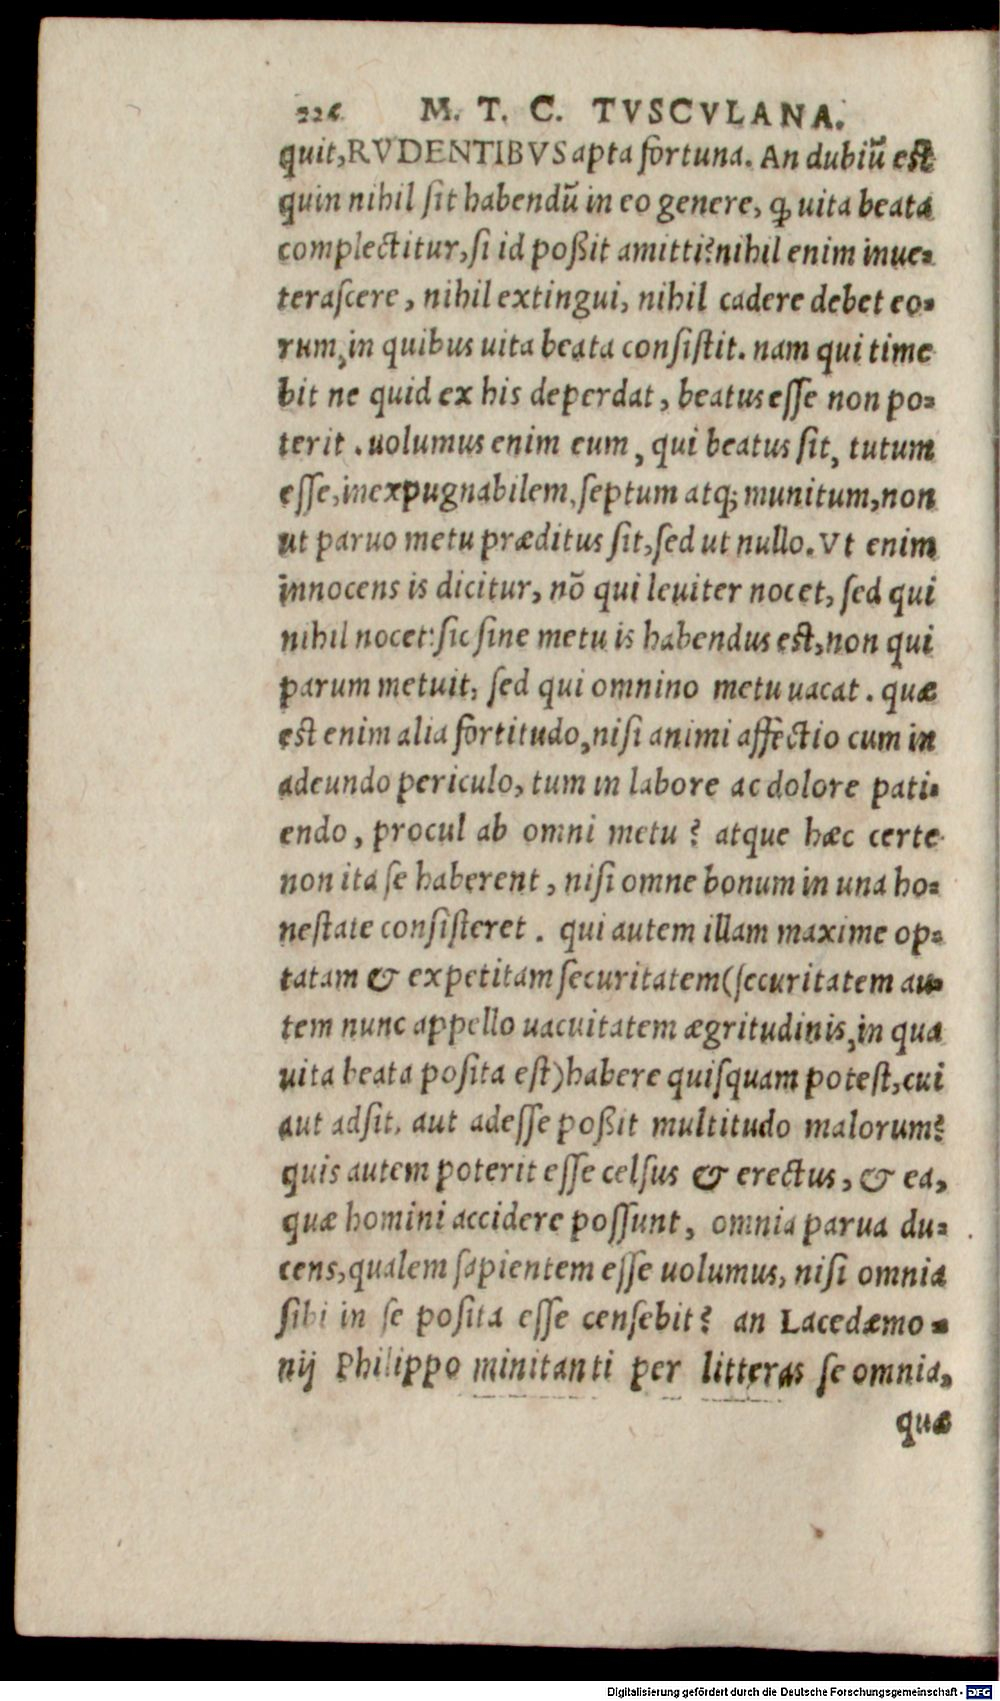 226 M. T. C. TVSCVLANA.
quit, RVDENTIBVS apta fortuna. An dubiũ est
quin nihil sit habendũ in eo genere, ꝙ uita beata
complectitur, si id poßit amitti? nihil enim inue-
terascere, nihil extingui, nihil cadere debet eo-
rum, in quibus uita beata consistit. nam qui time
bit ne quid ex his deperdat, beatus esse non po-
terit. uolumus enim eum, qui beatus sit, tutum
esse, inexpugnabilem, septum atq; munitum, non
ut paruo metu præditus sit, sed ut nullo. Vt enim
innocens is dicitur, nõ qui leuiter nocet, sed qui
nihil nocet: sic sine metu is habendus est, non qui
parum metuit, sed qui omnino metu uacat. quæ
est enim alia fortitudo, nisi animi affectio cum in
adeundo periculo, tum in labore ac dolore pati-
endo, procul ab omni metu? atque hæc certe
non ita se haberent, nisi omne bonum in una ho-
nestate consisteret. qui autem illam maxime op-
tatam & expetitam securitatem (securitatem au-
tem nunc appello uacuitatem ægritudinis, in qua
uita beata posita est) habere quisquam potest, cui
aut adsit, aut adesse poßit multitudo malorum?
quis autem poterit esse celsus & erectus, & ea,
quæ homini accidere possunt, omnia parua du-
cens, qualem sapientem esse uolumus, nisi omnia
sibi in se posita esse censebit? an Lacedæmo-
nij Philippo minitanti per litteras se omnia,
quæ
Digitalisierung gefördert durch die Deutsche Forschungsgemeinschaft - DFG